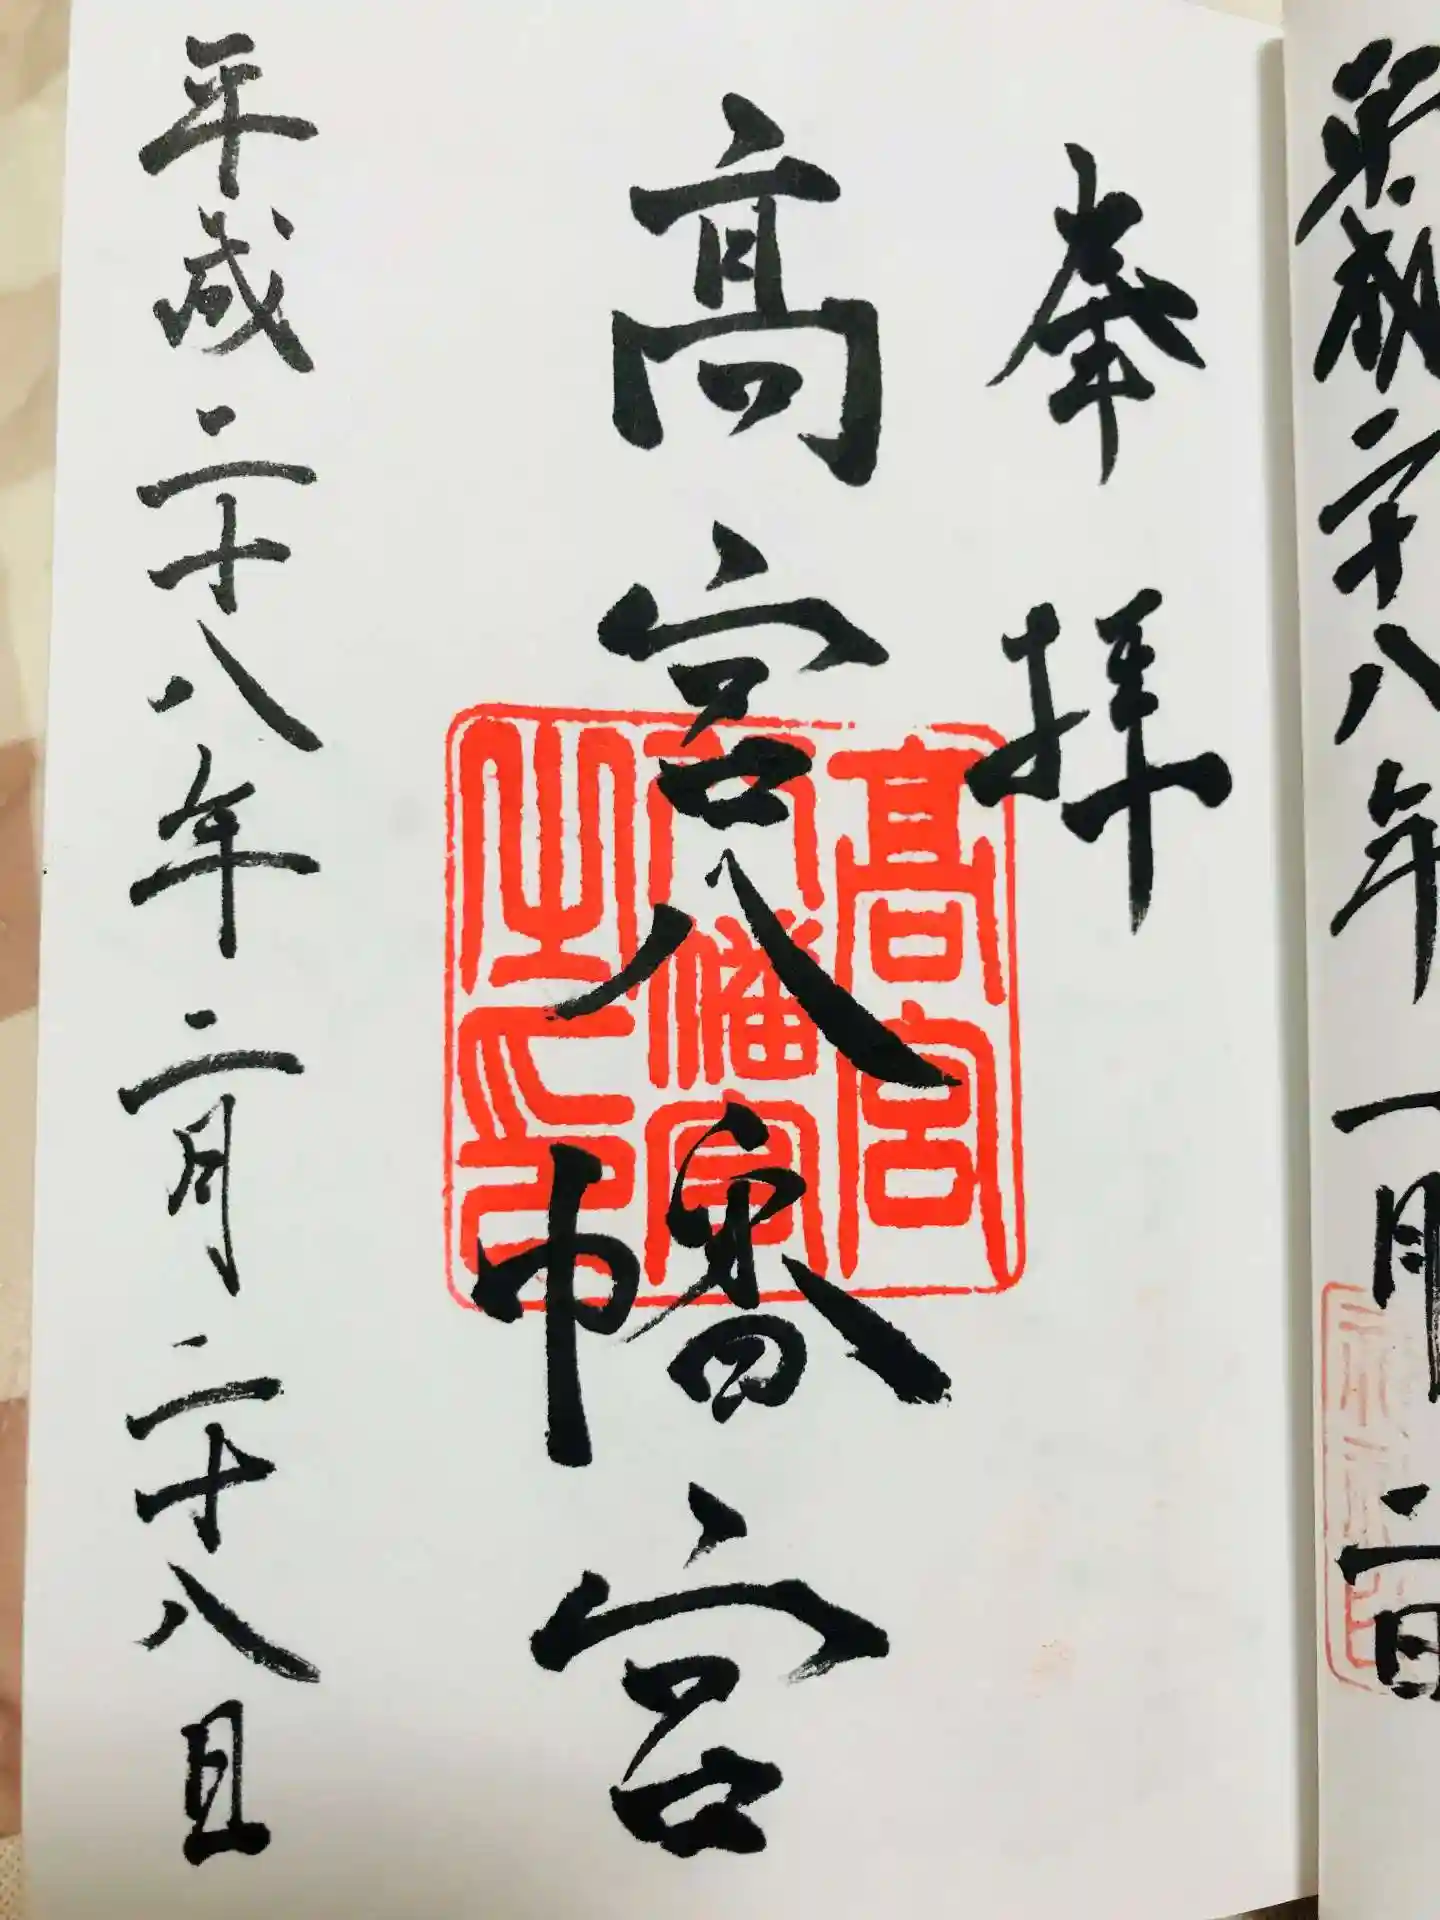 平成二十八年
一月
二日
奉拝
高宮八幡宮
高宮
八幡宮
之印
平成二十八年二月二十八日